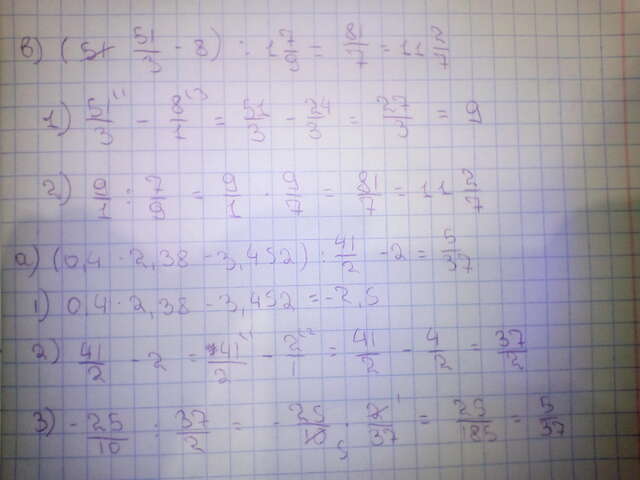 в) (5+ 51/3 - 8) : 1 7/9 = 81/7 = 11 2/7
1) 51/3 - 8/1 = 51/3 - 24/3 = 27/3 = 9
2) 9/1 : 7/9 = 9/1 · 9/7 = 81/7 = 11 2/7
а) (0,4 · 2,38 - 3,452) : 41/2 - 2 = 5/37
1) 0,4 · 2,38 - 3,452 = -2,5
2) 41/2 - 2 = 41/2 - 2/1 = 41/2 - 4/2 = 37/2
3) - 25/10 : 37/2 = - 25/10 5 · 2/37 1 = 25/185 = 5/37